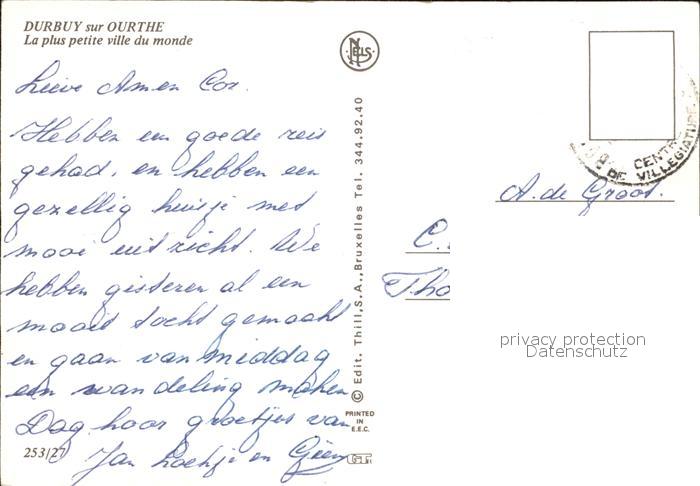 DURBUY sur OURTHE
La plus petite ville du monde
NELS
Lieve Am en Cor.
Hebben een goede reis
gehad, en hebben een
gezellig huisje met
mooi uitzicht. We
hebben gisteren al een
mooie tocht gemaakt
en gaan van middag
een wandeling maken
Dag hoor groetjes van
Jan en
253/27
© Edit. Thill, S.A., Bruxelles Tel. 344.92.40
PRINTED
IN
E.E.C.
CENTRE
DE VILLEGIATURE
A. de Groot.
C.
Tho
privacy protection
Datenschutz